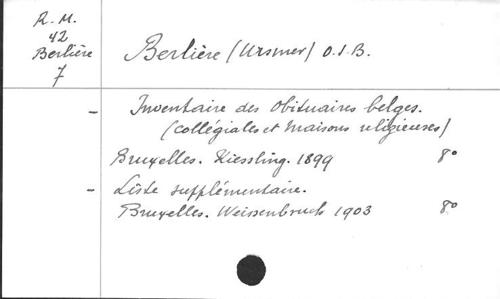 R. M.
42
Berlière
7
Berlière (Ursmer) O.S.B.
- Inventaire des Obituaires belges.
(collégiales et maisons religieuses)
Bruxelles. Kiessling. 1899 8°
- Liste supplémentaire.
Bruxelles. Weissenbruch 1903 8°